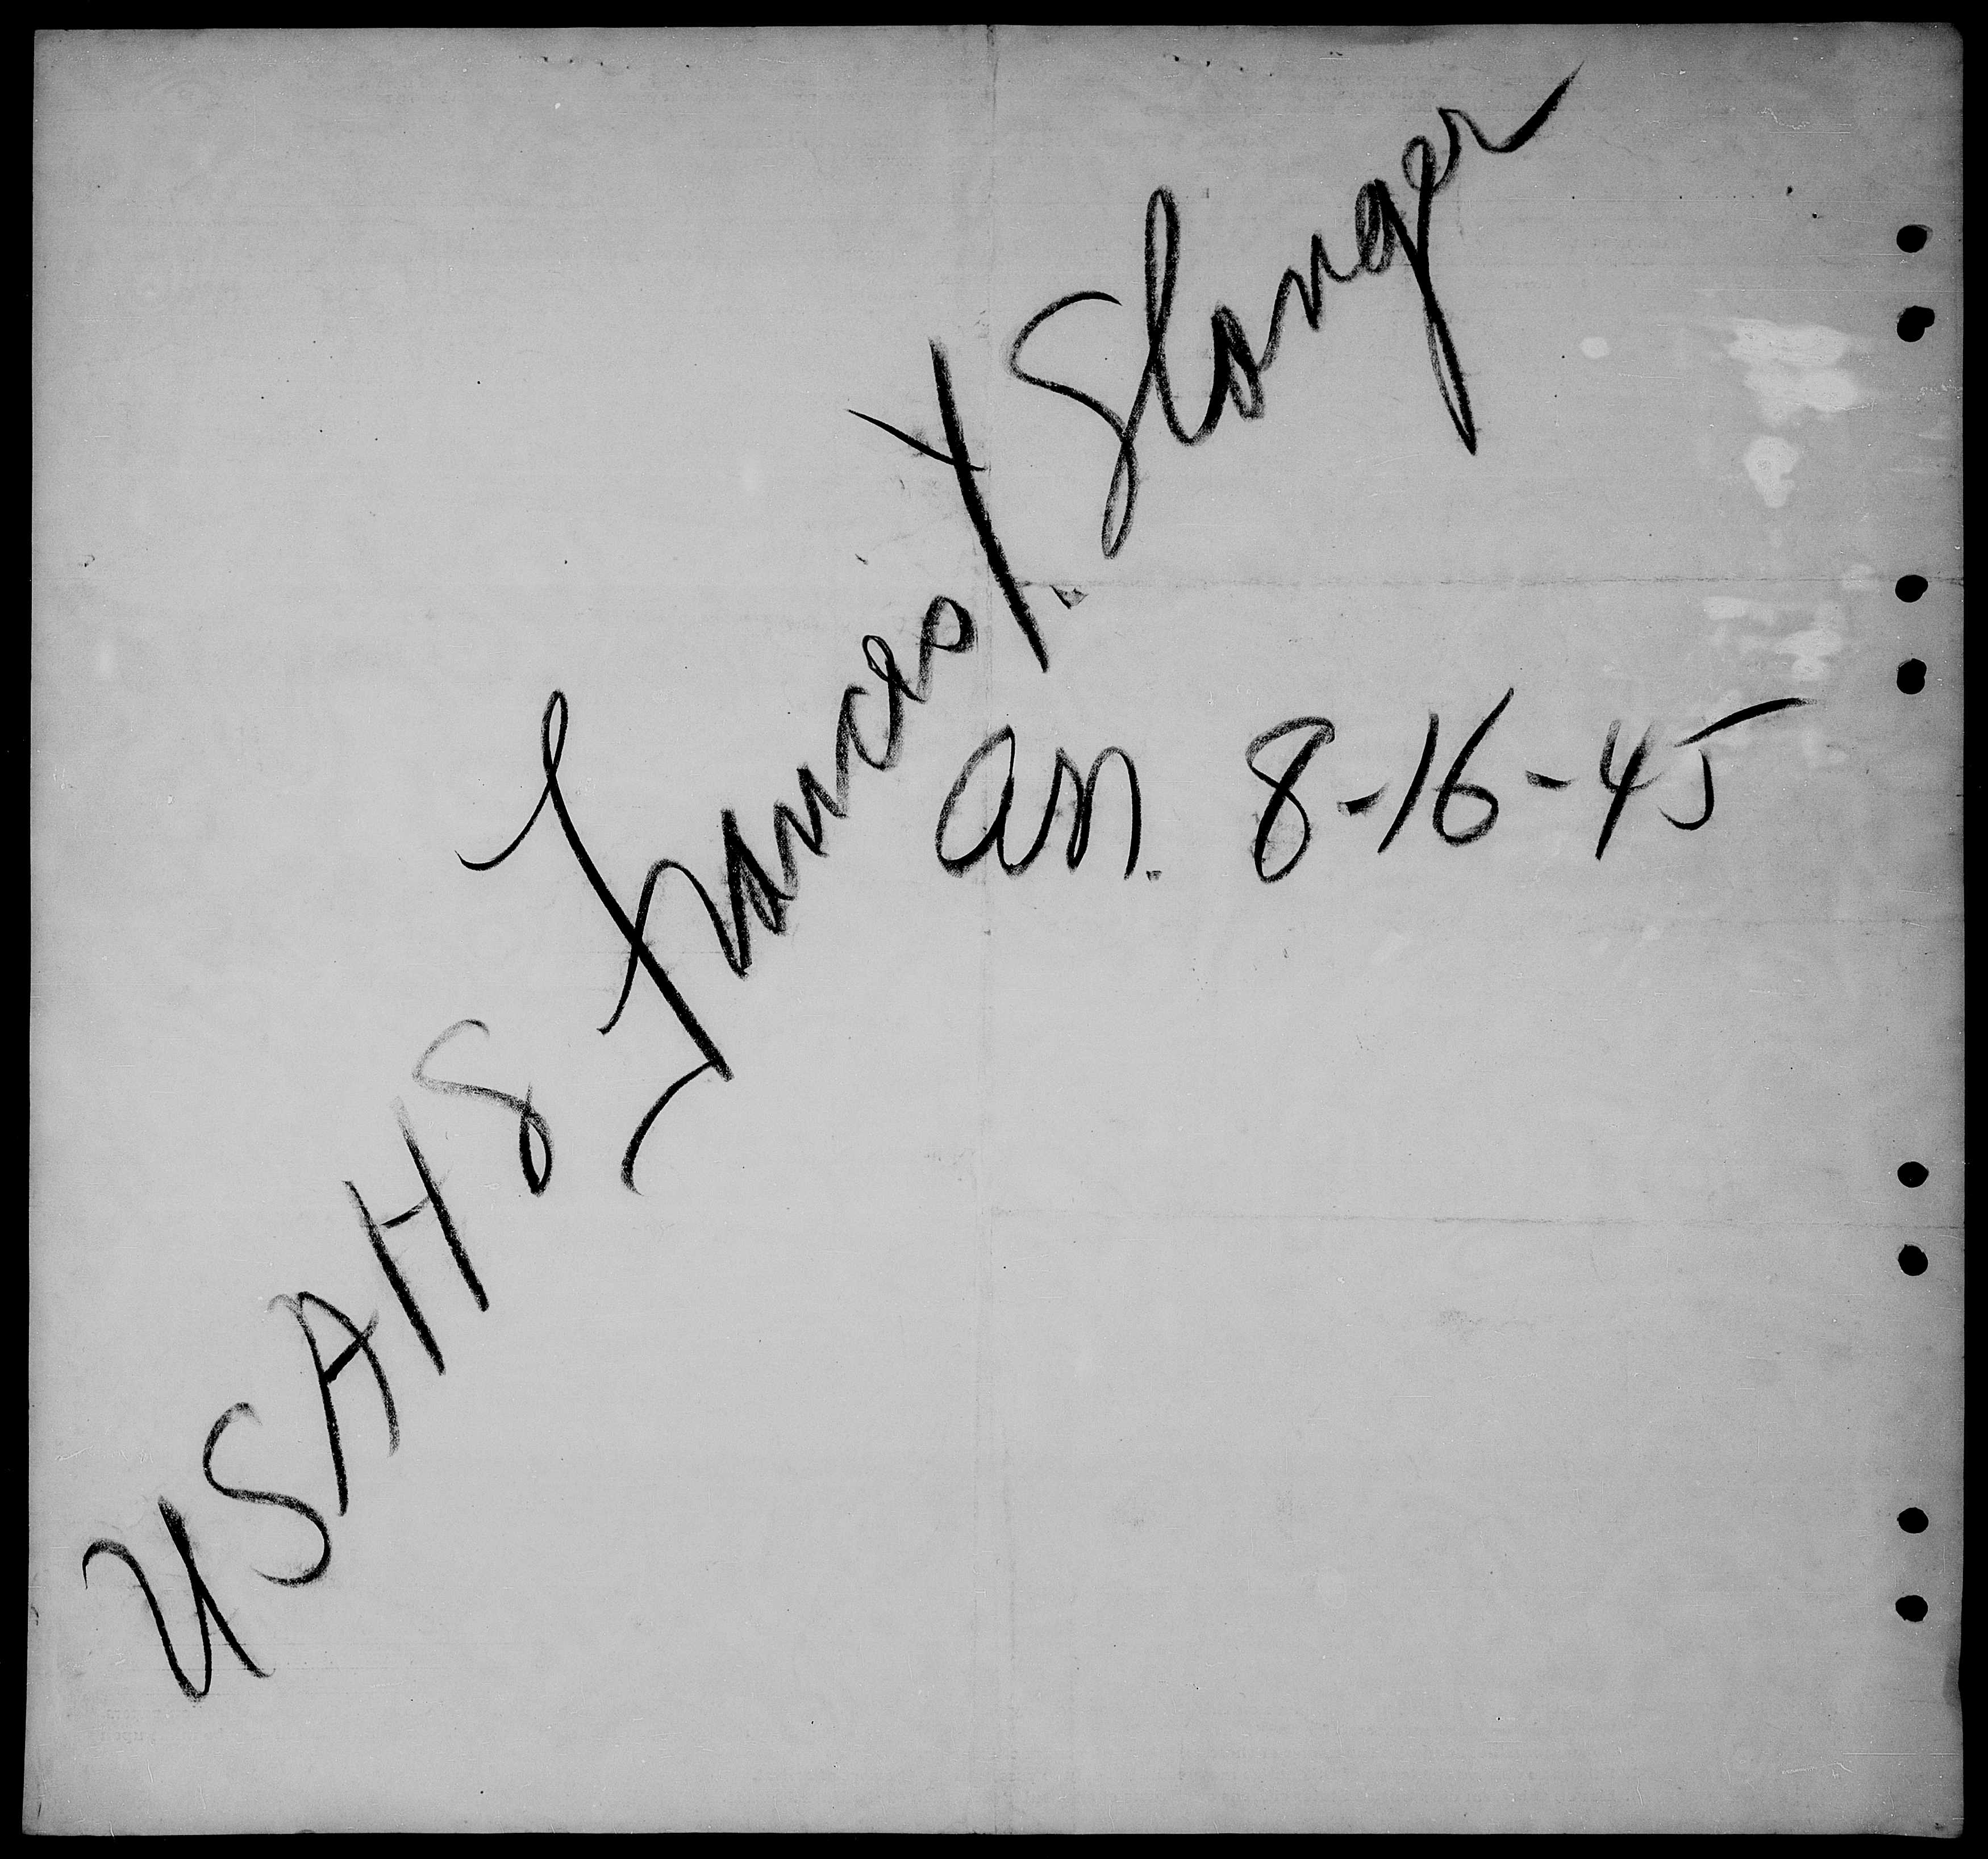 USAHS Frances Y. Slanger
arr. 8-16-45